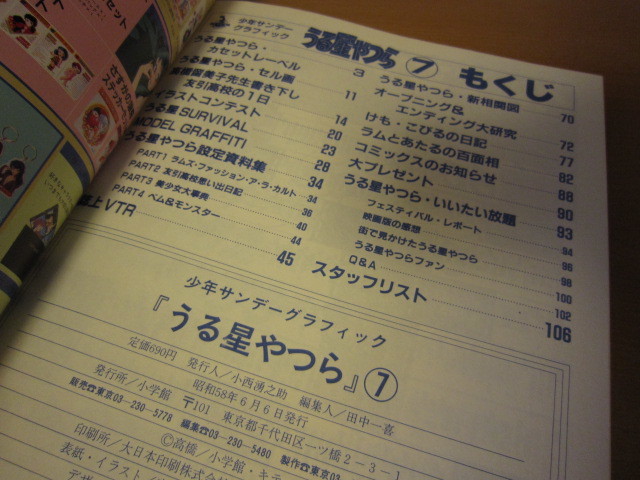 少年サンデー
グラフィック
うる星やつら 7 もくじ
うる星やつら・
カセットレーベル 3
うる星やつら・セル画
留美子先生書き下し
友引高校の1日 11
イラストコンテスト 14
うる星 SURVIVAL 20
MODEL GRAFFITI 23
うる星やつら設定資料集 28
PART1 ラムズ・ファッション・ア・ラ・カルト 34
PART2 友引高校思い出日記 36
PART3 美少女大事典 40
PART4 ベム&モンスター 44
上 VTR 45
うる星やつら・新相関図 70
オープニング&
エンディング大研究 72
けも・こびるの日記 77
ラムとあたるの百面相 82
コミックスのお知らせ 88
大プレゼント 90
うる星やつら・いいたい放題 93
フェスティバル・レポート 94
映画版の感想 96
街で見かけたうる星やつら 98
うる星やつらファン 100
Q&A 102
スタッフリスト 106
少年サンデーグラフィック
『うる星やつら』7
定価690円 発行人/小西湧之助 編集人/田中一喜
昭和58年6月6日発行
発行所/小学館 〒101 東京都千代田区一ツ橋2-3-1
販売☎東京03-230-5778 編集☎03-230-5480 製作☎東京03
©高橋/小学館・キテ
印刷所/大日本印刷株式会
表紙・イラスト/
デザ